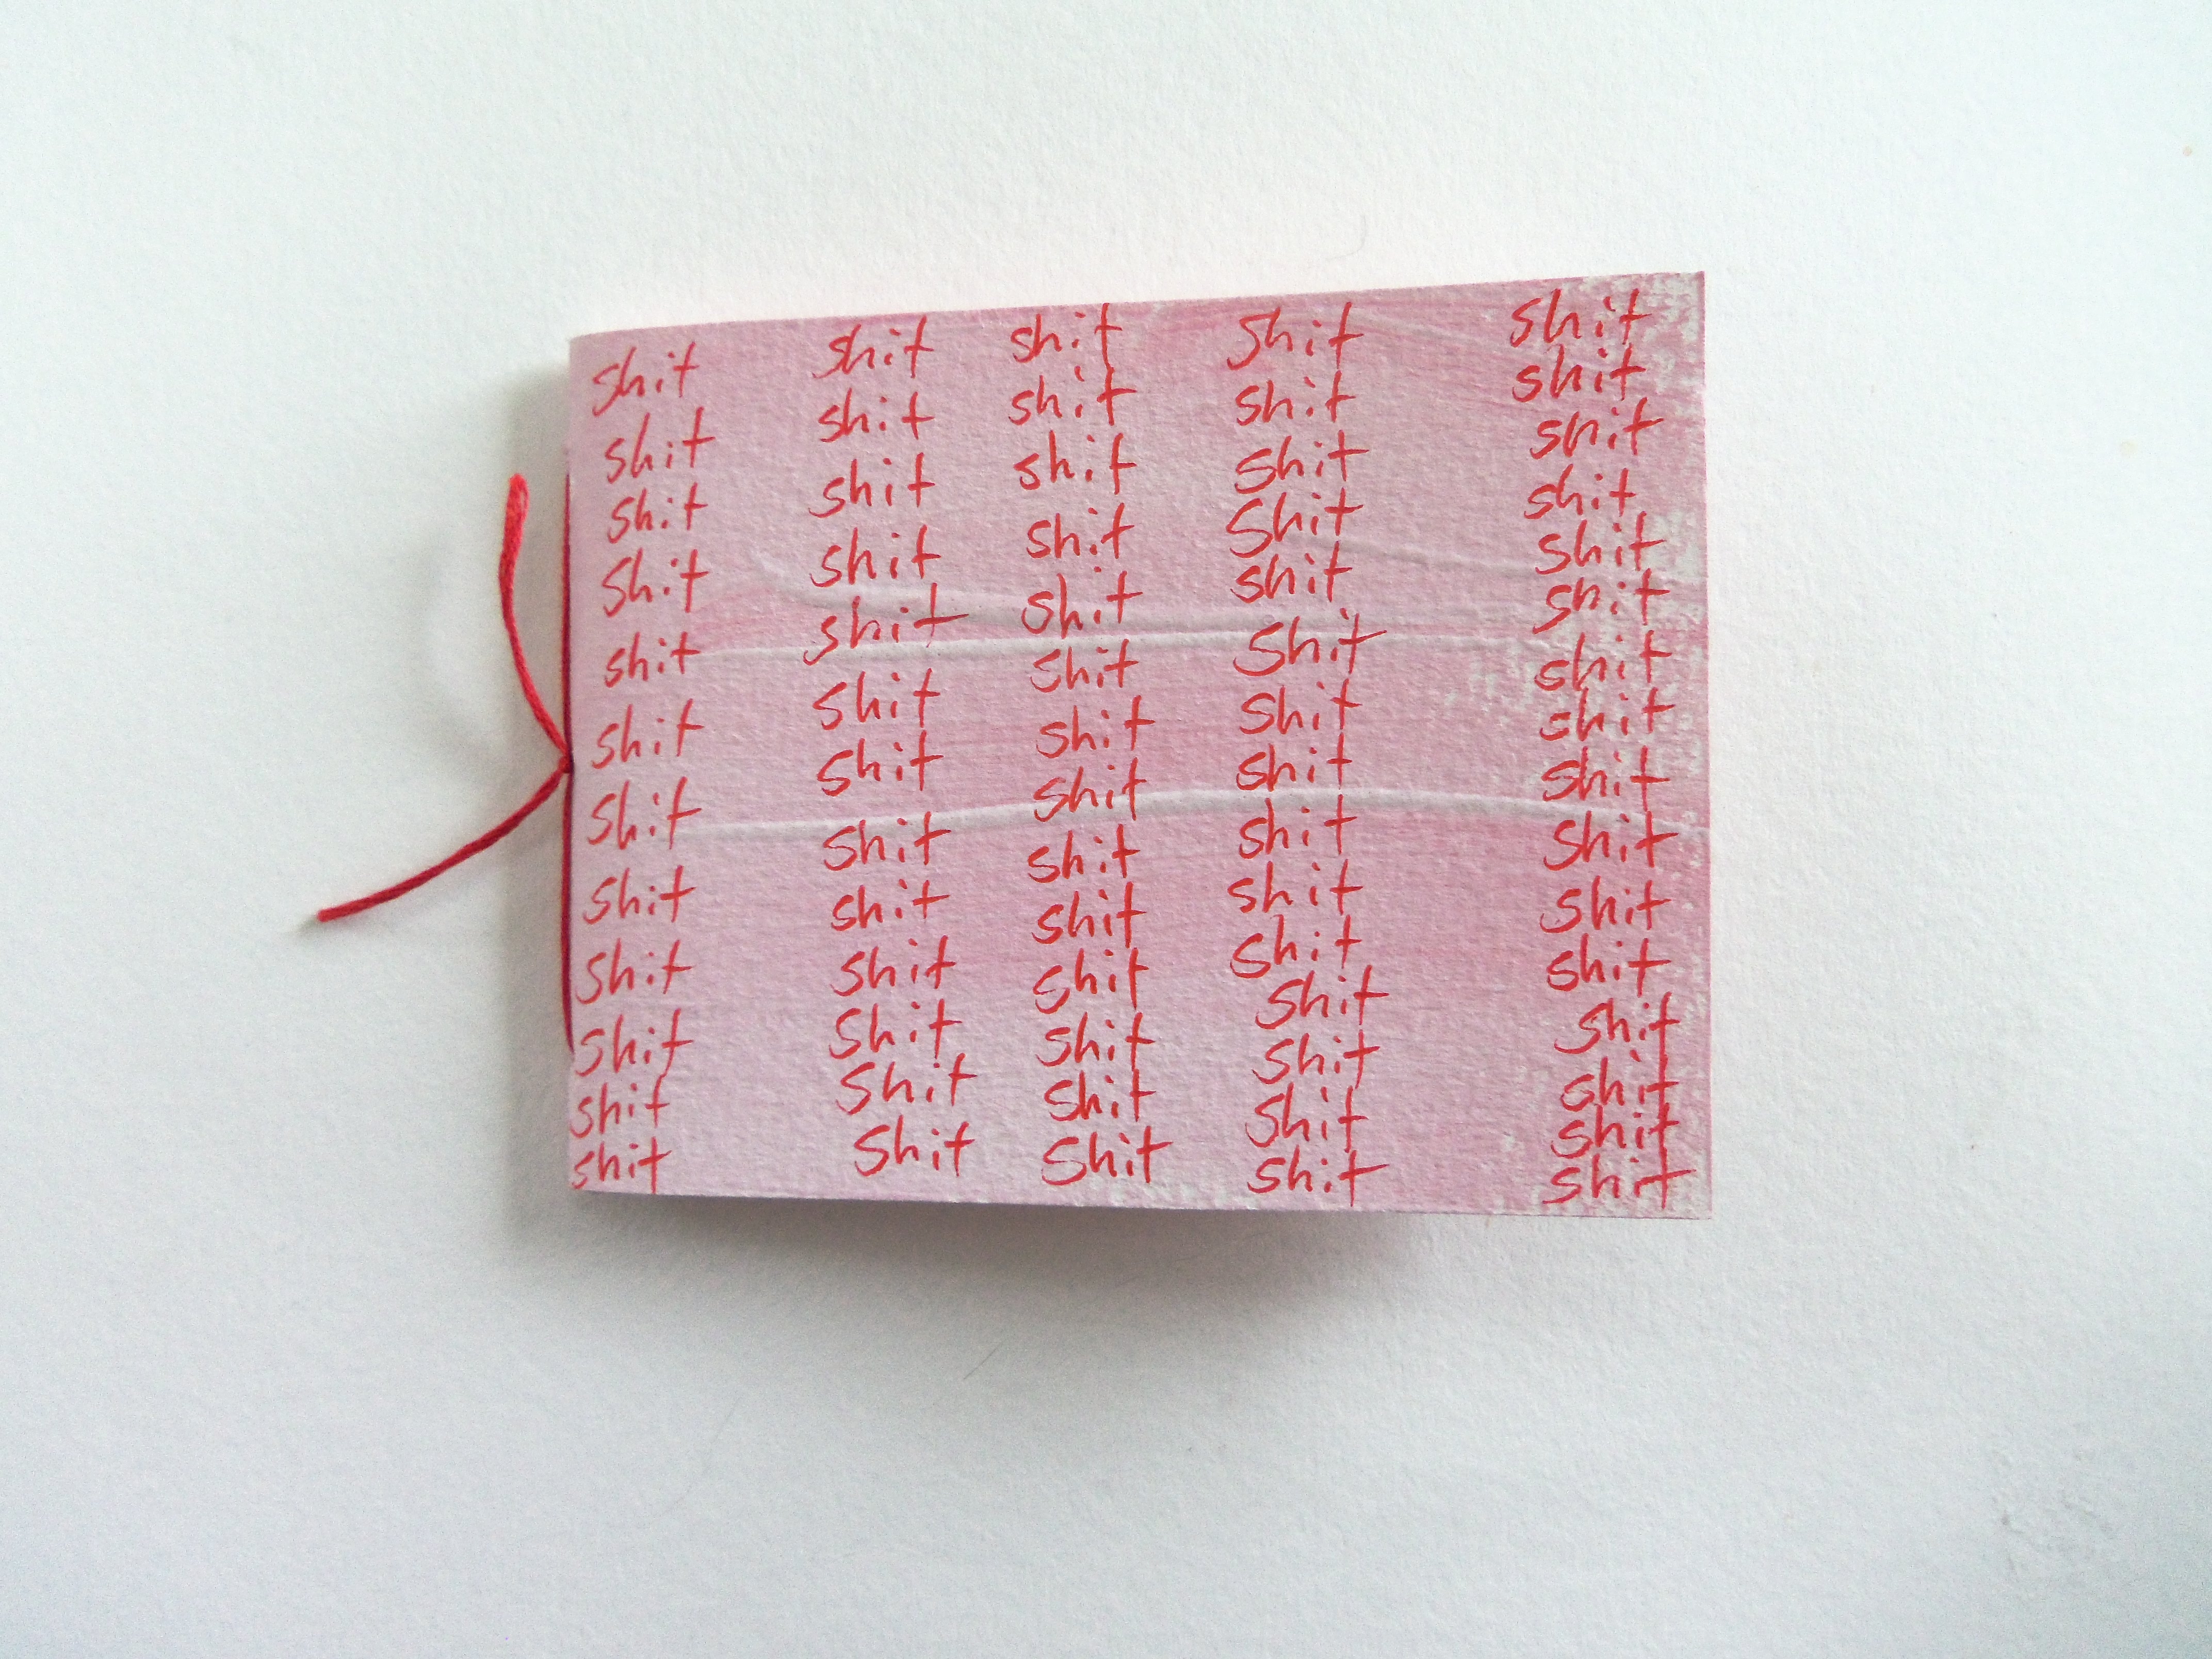 shit shit shit shit shit
shit shit shit shit shit
shit shit shit shit shit
shit shit shit shit shit
shit shit shit shit shit
shit shit shit shit shit
shit shit shit shit shit
shit shit shit shit shit
shit shit shit shit shit
shit shit shit shit shit
shit shit shit shit shit
shit shit shit shit shit
shit shit shit shit
shit shit shit
shit shit
shit